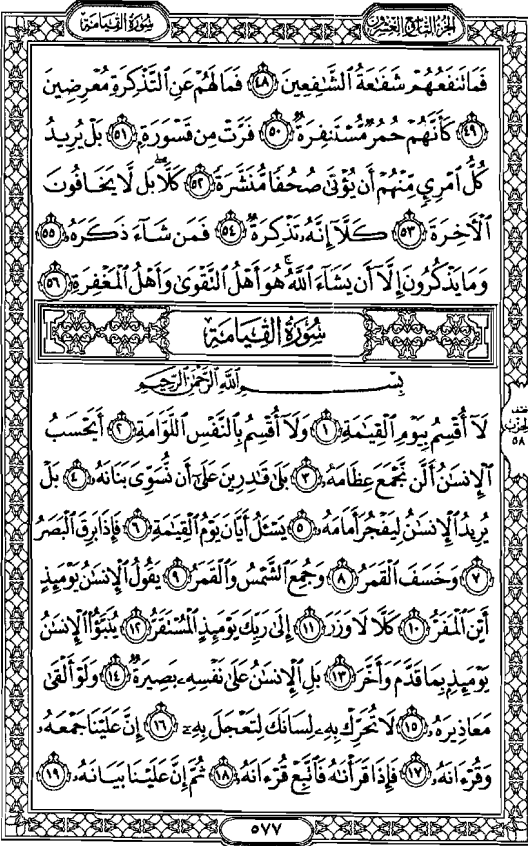 سُورَةُ القِيَامَةِ
الجُزْءُ التَّاسِعُ وَالعِشْرُونَ
فَمَا تَنفَعُهُمْ شَفَٰعَةُ ٱلشَّٰفِعِينَ ٤٨ فَمَا لَهُمْ عَنِ ٱلتَّذْكِرَةِ مُعْرِضِينَ
٤٩ كَأَنَّهُمْ حُمُرٌ مُّسْتَنفِرَةٌ ٥٠ فَرَّتْ مِن قَسْوَرَةٍ ٥١ بَلْ يُرِيدُ
كُلُّ ٱمْرِئٍ مِّنْهُمْ أَن يُؤْتَىٰ صُحُفًا مُّنَشَّرَةً ٥٢ كَلَّا ۖ بَل لَّا يَخَافُونَ
ٱلْءَاخِرَةَ ٥٣ كَلَّآ إِنَّهُۥ تَذْكِرَةٌ ٥٤ فَمَن شَآءَ ذَكَرَهُۥ ٥٥
وَمَا يَذْكُرُونَ إِلَّآ أَن يَشَآءَ ٱللَّهُ ۚ هُوَ أَهْلُ ٱلتَّقْوَىٰ وَأَهْلُ ٱلْمَغْفِرَةِ ٥٦
سُورَةُ القِيَامَةِ
بِسْمِ ٱللَّهِ ٱلرَّحْمَٰنِ ٱلرَّحِيمِ
لَآ أُقْسِمُ بِيَوْمِ ٱلْقِيَٰمَةِ ١ وَلَآ أُقْسِمُ بِٱلنَّفْسِ ٱللَّوَّامَةِ ٢ أَيَحْسَبُ
ٱلْإِنسَٰنُ أَلَّن نَّجْمَعَ عِظَامَهُۥ ٣ بَلَىٰ قَٰدِرِينَ عَلَىٰٓ أَن نُّسَوِّىَ بَنَانَهُۥ ٤ بَلْ
يُرِيدُ ٱلْإِنسَٰنُ لِيَفْجُرَ أَمَامَهُۥ ٥ يَسْـَٔلُ أَيَّانَ يَوْمُ ٱلْقِيَٰمَةِ ٦ فَإِذَا بَرِقَ ٱلْبَصَرُ
٧ وَخَسَفَ ٱلْقَمَرُ ٨ وَجُمِعَ ٱلشَّمْسُ وَٱلْقَمَرُ ٩ يَقُولُ ٱلْإِنسَٰنُ يَوْمَئِذٍ
أَيْنَ ٱلْمَفَرُّ ١٠ كَلَّا لَا وَزَرَ ١١ إِلَىٰ رَبِّكَ يَوْمَئِذٍ ٱلْمُسْتَقَرُّ ١٢ يُنَبَّؤُا۟ ٱلْإِنسَٰنُ
يَوْمَئِذٍۭ بِمَا قَدَّمَ وَأَخَّرَ ١٣ بَلِ ٱلْإِنسَٰنُ عَلَىٰ نَفْسِهِۦ بَصِيرَةٌ ١٤ وَلَوْ أَلْقَىٰ
مَعَاذِيرَهُۥ ١٥ لَا تُحَرِّكْ بِهِۦ لِسَانَكَ لِتَعْجَلَ بِهِۦٓ ١٦ إِنَّ عَلَيْنَا جَمْعَهُۥ
وَقُرْءَانَهُۥ ١٧ فَإِذَا قَرَأْنَٰهُ فَٱتَّبِعْ قُرْءَانَهُۥ ١٨ ثُمَّ إِنَّ عَلَيْنَا بَيَانَهُۥ ١٩
نصف
الحزب
٥٨
٥٧٧